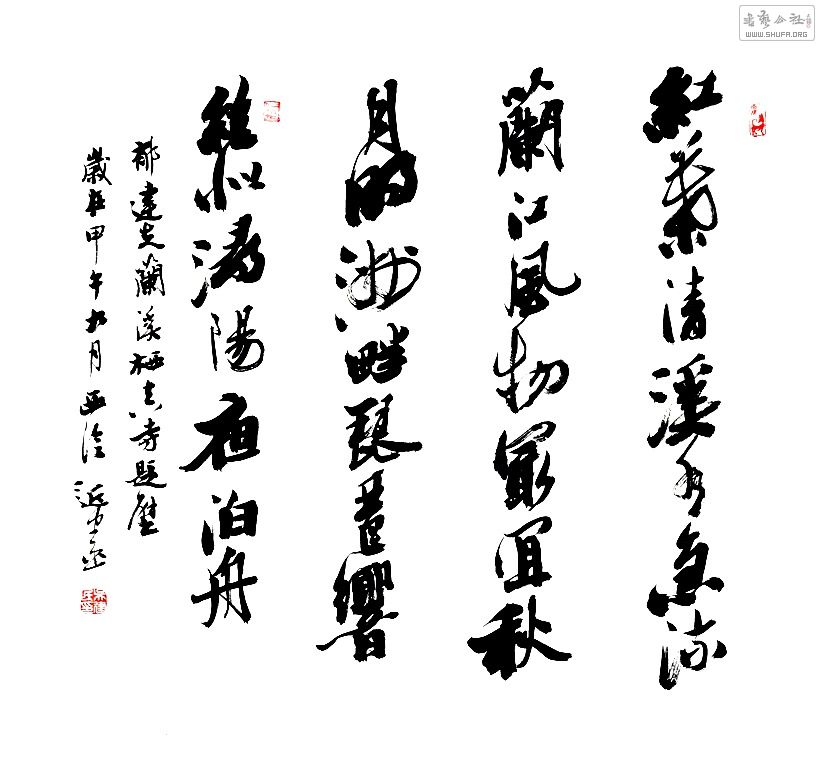 書藝公社
WWW.SHUFA.ORG
紅葉清溪水急流
蘭江風物最宜秋
月明洲畔琵琶響
絕似潯陽夜泊舟
郁達夫蘭溪栖真寺題壁
歲在甲午九月